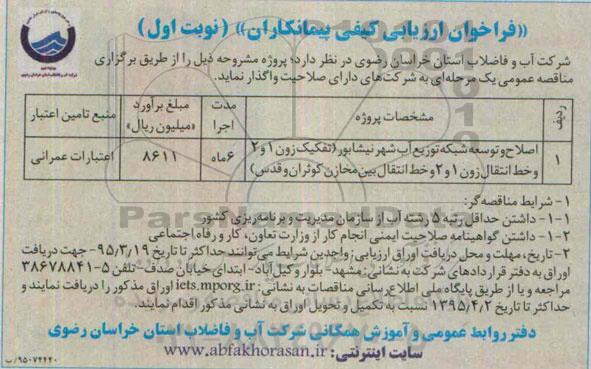 «فراخوان ارزیابی کیفی پیمانکاران» (نوبت اول)
شرکت آب و فاضلاب استان خراسان رضوی در نظر دارد؛ پروژه مشروحه ذیل را از طریق برگزاری
مناقصه عمومی یک مرحله‌ای به شرکت‌های دارای صلاحیت واگذار نماید.
ردیف | مشخصات پروژه | مدت اجرا | مبلغ برآورد «میلیون ریال» | منبع تامین اعتبار
۱ | اصلاح و توسعه شبکه توزیع آب شهر نیشابور (تفکیک زون ۱ و ۲ و خط انتقال زون ۱ و ۲ و خط انتقال بین مخازن کوثران و قدس) | ۶ ماه | ۸۶۱۱ | اعتبارات عمرانی
۱- شرایط مناقصه‌گر:
۱-۱- داشتن حداقل رتبه ۵ رشته آب از سازمان مدیریت و برنامه‌ریزی کشور
۱-۲- داشتن گواهینامه صلاحیت ایمنی انجام کار از وزارت تعاون، کار و رفاه اجتماعی
۲- تاریخ، مهلت و محل دریافت اوراق ارزیابی: واجدین شرایط می‌توانند حداکثر تا تاریخ ۹۵/۳/۱۹- جهت دریافت
اوراق به دفتر قراردادهای شرکت به نشانی: مشهد- بلوار وکیل‌آباد- ابتدای خیابان صدف- تلفن ۵-۳۸۶۷۸۸۴۱
مراجعه و یا از طریق پایگاه ملی اطلاع رسانی مناقصات به نشانی: iets.mporg.ir اوراق مذکور را دریافت نمایند و
حداکثر تا تاریخ ۱۳۹۵/۴/۲ نسبت به تکمیل و تحویل اوراق به نشانی مذکور اقدام نمایند.
دفتر روابط عمومی و آموزش همگانی شرکت آب و فاضلاب استان خراسان رضوی
سایت اینترنتی: www.abfakhorasan.ir
۹۵۰۷۴۴۴۰/ب